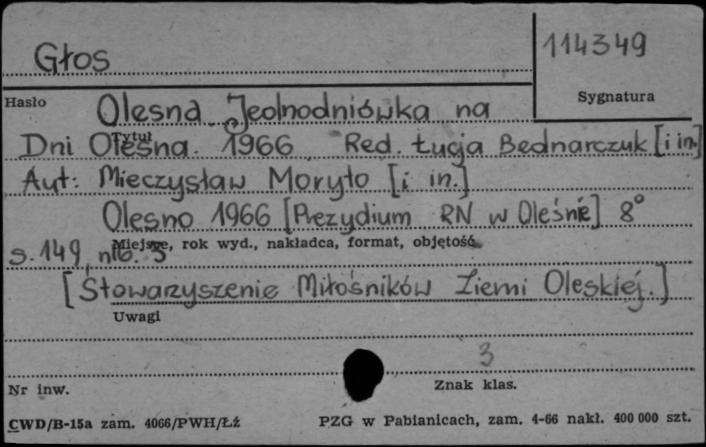 Głos
114349
Hasło
Sygnatura
Olesna. Jednodniówka na
Tytuł
Dni Olesna. 1966. Red. Łucja Bednarczuk [i in.]
Aut: Mieczysław Moryto [i in.]
Olesno 1966 [Prezydium RN w Oleśnie] 8°
Miejsce, rok wyd., nakładca, format, objętość
s. 149, nlb. 3
[Stowarzyszenie Miłośników Ziemi Oleskiej.]
Uwagi
3
Nr inw.
Znak klas.
CWD/B-15a zam. 4066/PWH/Łź
PZG w Pabianicach, zam. 4-66 nakł. 400 000 szt.